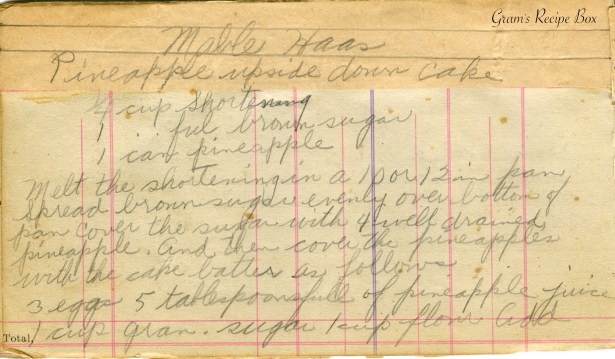 Gram's Recipe Box
Mable Haas
Pineapple upside down cake
1/4 cup shortening
1 " ful brown sugar
1 can pineapple
Melt the shortening in a 10 or 12 in pan
spread brown sugar evenly over bottom of
pan cover the sugar with 4 well drained
pineapple. And then cover the pineapples
with the cake batter as follows
3 eggs 5 tablespoonsfull of pineapple juice
1 cup gran. sugar 1 cup flour Add
Total,